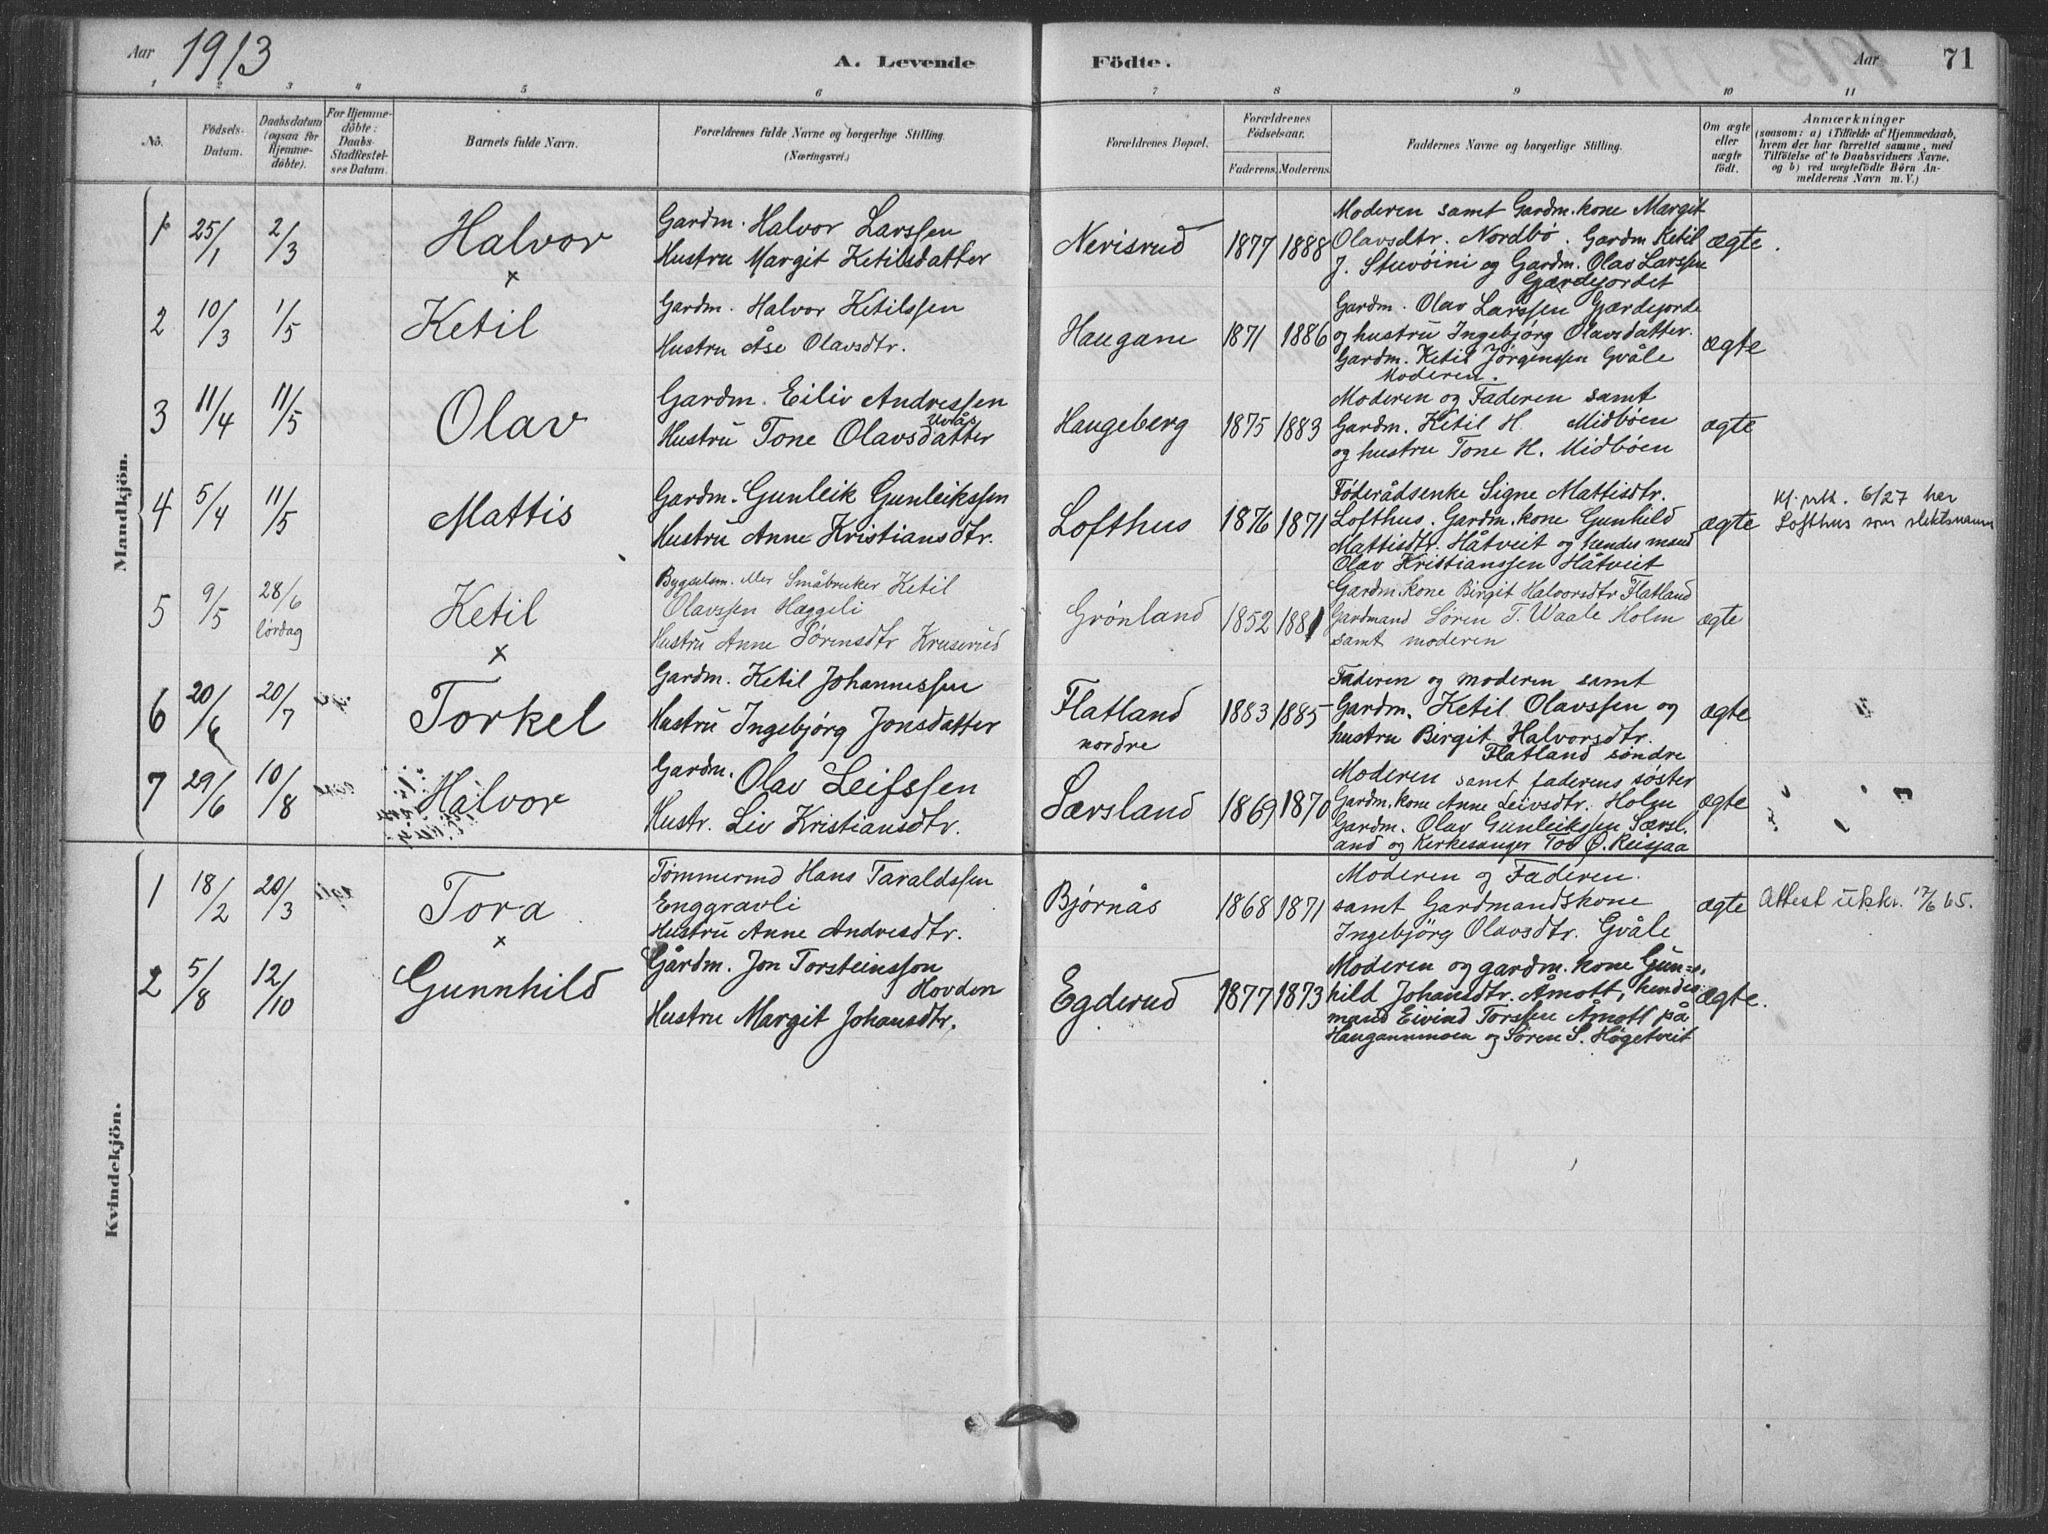 Aar 1913 A. Levende Födte. Aar 71
1 2 3 4 5 6 7 8 9 10 11
No. Födsels-Datum. Daabsdatum (ogsaa for Hjemmedöbte). For Hjemmedöbte: Daabs-Stadfæstelses Datum. Barnets fulde Navn. Forældrenes fulde Navne og borgerlige Stilling. (Næringsvei.) Forældrenes Bopæl. Forældrenes Födselsaar. Faderens. Moderens. Faddernes Navne og borgerlige Stilling. Om ægte eller uægte födt. Anmærkninger (saasom: a) i Tilfælde af Hjemmedaab, hvem der har forrettet samme, med Tilföielse af to Daabsvidners Navne, og b) ved uægtefödte Börn Anmelderens Navn m. V.)
Mandkjön.
1 25/1 2/3 Halvor
Gardm. Halvor Larssen
Hustru Margit Ketilsdatter
Nerisrud 1877 1888
Moderen samt Gardm.kone Margit
Olavsdtr. Nordbö. Gardm Ketil
J. Stuvöini og Gardm. Olav Larssen
Gærdejordet
ægte.
2 10/3 1/5 Ketil
Gardm. Halvor Ketilssen
Hustru Åse Olavsdtr.
Haugane 1871 1886
Gardm. Olav Larssen Gjærdejorde
og hustru Ingebjørg Olavsdatter.
Gardm. Ketil Jørgenssen Gvåle
Moderen.
ægte
3 11/4 11/5 Olav
Gardm. Eiliv Andressen
Uvås
Hustru Tone Olavsdatter
Haugeberg 1875 1883
Moderen og Faderen samt
Gardm. Ketil H. Midbøen
og hustru Tone H. Midbøen
ægte
4 5/4 11/5 Mattis
Gardm. Gunleik Gunleikssen
Hustru Anne Kristiansdtr.
Lofthus 1876 1871
Føderådsenke Signe Mattisdtr.
Lofthus. Gardm.kone Gunhild
Mattisdtr. Håtveit og hendes mand
Olav Kristianssen Håtveit
ægte
6/27 har
Lofthus som slektsnamn
5 9/5 28/6 lørdag Ketil
Bygselsm. eller Småbruker Ketil
Olavssen Hæggeli
Hustru Anne Sørensdtr Kruserud
Grönland 1852 1881
Gardm.kone Birgit Halvorsdtr Flatland
Gardmand Søren T. Waale Holm
samt moderen
ægte
6 20/6 20/7 Torkel
Gardm. Ketil Johannessen
Hustru Ingebjørg Jonsdatter
Flatland
nordre
1883 1885
Faderen og moderen samt
Gardm. Ketil Olavssen og
hustru Birgit Halvorsdtr.
Flatland søndre
ægte
7 29/6 10/8 Halvor
Gardm. Olav Leifssen
Hustr. Liv Kristiansdtr.
Særsland 1869 1870
Moderen samt faderens søster
Gardm.kone Anne Leivsdtr. Holm
Gardm. Olav Gunleikssen Særsl.
and og Kirkesanger Tov Ø. Reisjaa
ægte
Kvindekjön.
1 18/2 20/3 Tora
Tømmermd Hans Taraldssen
Enggravli
Hustru Anne Andresdtr.
Bjørnås 1868 1871
Moderen og Faderen.
samt Gardmandskone
Ingebjörg Olavsdtr. Gvåle
ægte Attest ukkr. 17/6 65.
2 5/8 12/10 Gunnhild
Gårdm. Jon Torsteinsson
Hovden
Hustru Margit Johansdtr.
Egderud 1877 1873
Moderen og gardm.kone Gun-
hild Johansdtr. Åmott, hendes
mand Eivind Torssen Åmott på
Haugannmoen og Søren S. Høgetveit
ægte.